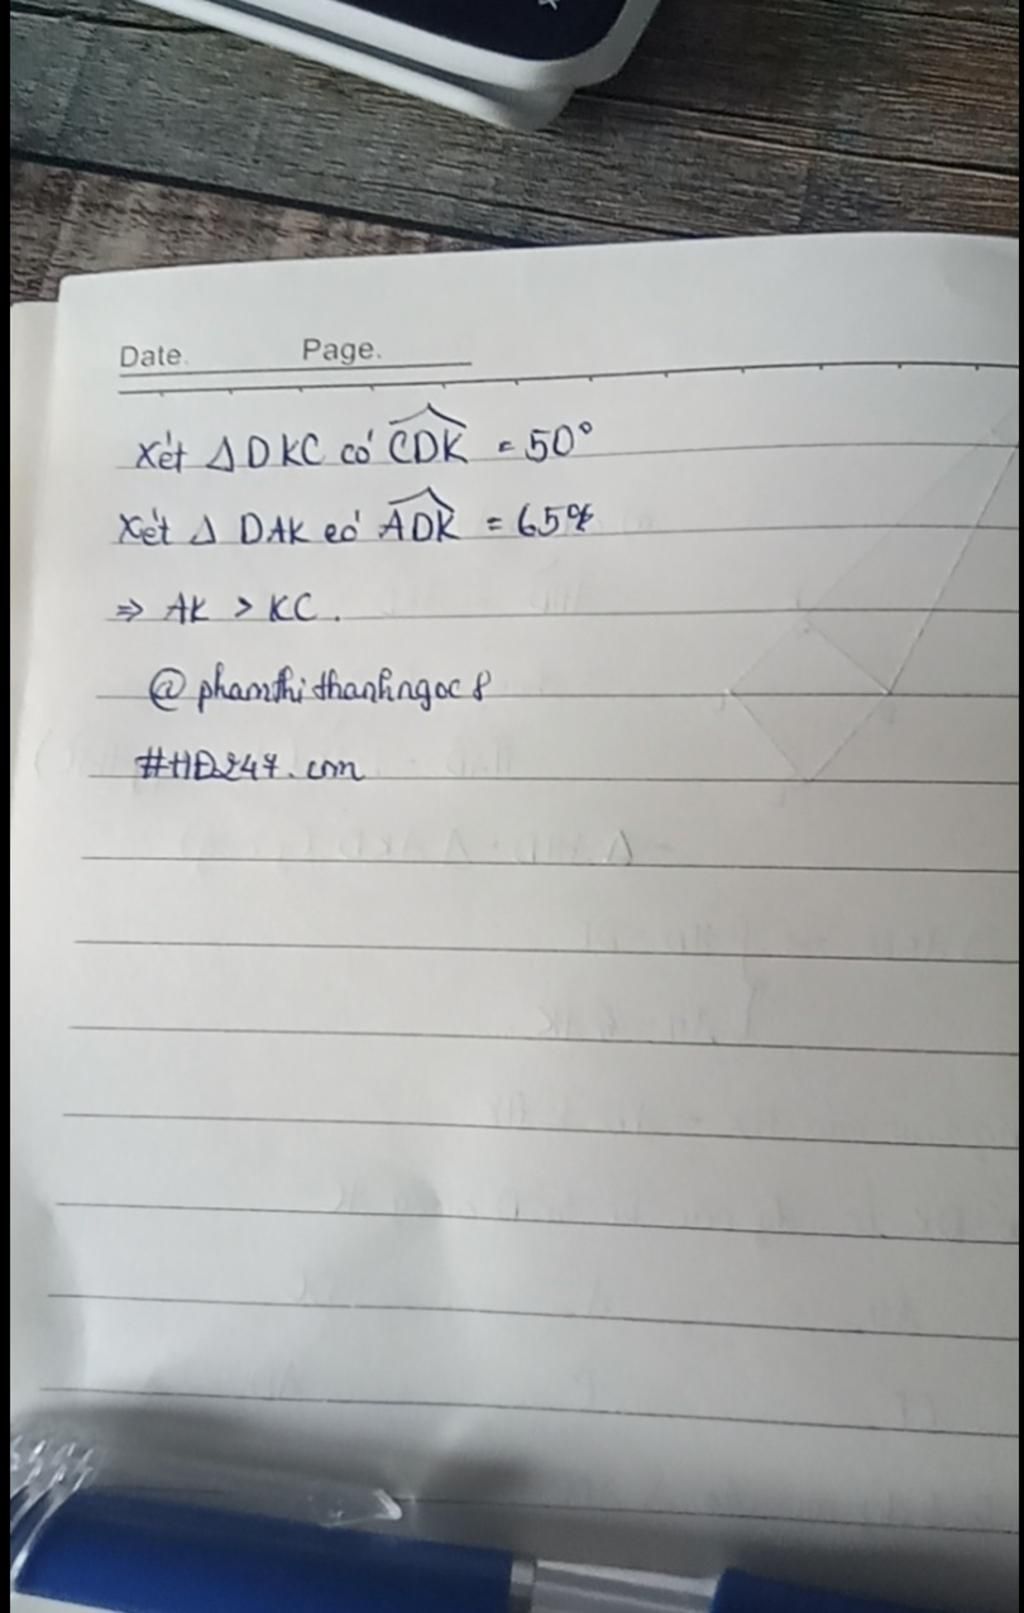 Date. Page.
Xét Δ DKC có CDK = 50°
Xét Δ DAK có ADK = 65°
⇒ AK > KC.
@phamthithanhngoc8
#HĐ247.com